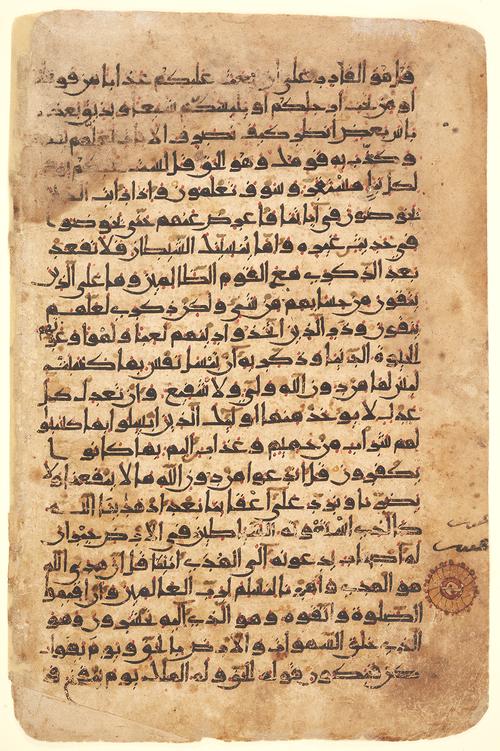 قل هو القادر على ان يبعث عليكم عذابا من فوقكم
او من تحت ارجلكم او يلبسكم شيعا ويذيق بعضكم
باس بعض انظر كيف نصرف الايات لعلهم
وكذب به قومك وهو الحق قل لست عليكم
لكل نبا مستقر وسوف تعلمون واذا رايت الذين
يخوضون في اياتنا فاعرض عنهم حتى يخوضوا
في حديث غيره واما ينسينك الشيطان فلا تقعد
بعد الذكرى مع القوم الظالمين وما على الذين
يتقون من حسابهم من شي ولكن ذكرى لعلهم
يتقون وذر الذين اتخذوا دينهم لعبا ولهوا وغرتهم
الحيوة الدنيا وذكر به ان تبسل نفس بما كسبت
ليس لها من دون الله ولي ولا شفيع وان تعدل كل
عدل لا يوخذ منها اوليك الذين ابسلوا بما كسبوا
لهم شراب من حميم وعذاب اليم بما كانوا
يكفرون قل اندعوا من دون الله ما لا ينفعنا ولا
يضرنا ونرد على اعقابنا بعد اذ هدينا الله
كالذي استهوته الشياطين في الارض حيران
له اصحاب يدعونه الى الهدى ائتنا قل ان هدى الله
هو الهدى وامرنا لنسلم لرب العالمين وان اقيموا
الصلوة واتقوه وهو الذي اليه تحشرون وهو
الذي خلق السموات والارض بالحق ويوم يقول
كن فيكون قوله الحق وله الملك يوم ينفخ في